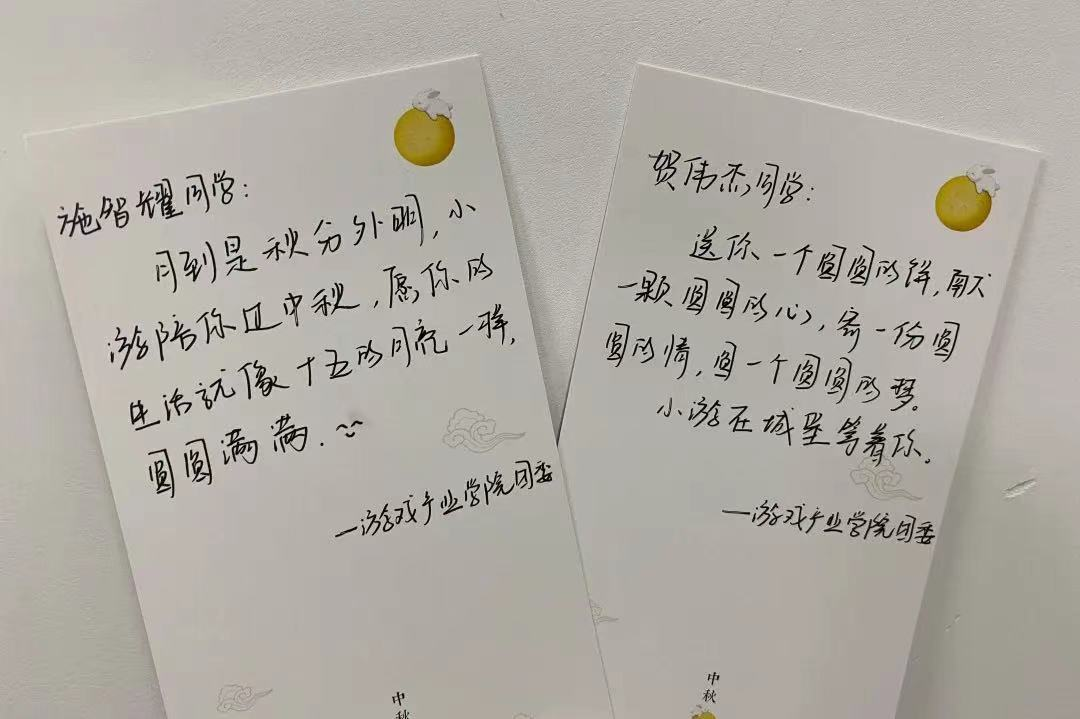 施智耀同学:
月到是秋分外明,小
游陪你过中秋,愿你的
生活就像十五的月亮一样,
圆圆满满.
—游戏产业学院团委
中秋
贺伟杰同学:
送你一个圆圆的饼,献
一颗圆圆的心,寄一份圆
圆的情,圆一个圆圆的梦。
小游在城堡等着你。
—游戏产业学院团委
中秋